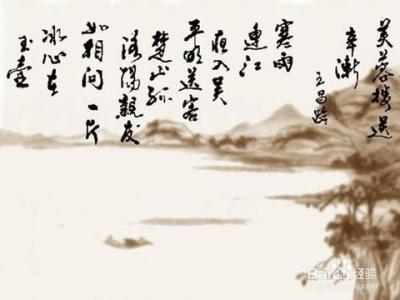 芙蓉楼送
辛渐
王昌龄
寒雨
连江
夜入吴
平明送客
楚山孤
洛阳親友
如相问 一片
冰心在
玉壶
Baidu经验